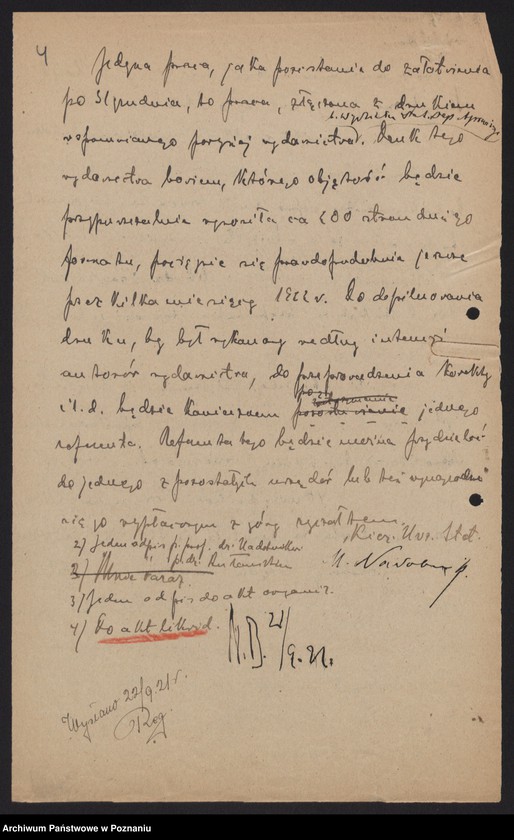 4
Jedyna praca, jaka pozostanie do załatwienia
po 31 grudnia, to praca, złączona z drukiem
wspomnianego powyżej wydawnictwa. Druk tego
wydawnictwa bowiem, którego objętość będzie
przypuszczalnie wynosiła ca 600 stron dużego
formatu, pociągnie się prawdopodobnie jeszcze
przez kilka miesięcy 1922 r. Do dopilnowania
druku, by był wykonany według intencji
autorów wydawnictwa, do przeprowadzenia korekty
i t. d. będzie koniecznem jednego
referenta. Referenta tego będzie można przydzielić
do jednego z pozostałych urzędów lub też wynagrodzić
się go wypłaconym z góry ryczałtem.
2) Jeden odpis p. prof. dr.
Kier. Urz. Stat.
3) Jeden odpis do akt organiz.
4) Do akt likwid.
22/9. 21.
Wysłano 22/9. 21 r.
Rog.
Archiwum Państwowe w Poznaniu